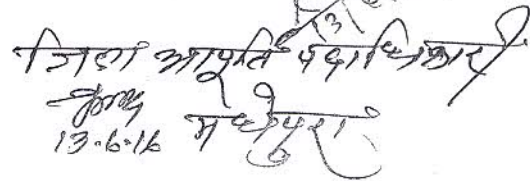 जिला आपूर्ति पदाधिकारी
13.6.16 मधेपुरा